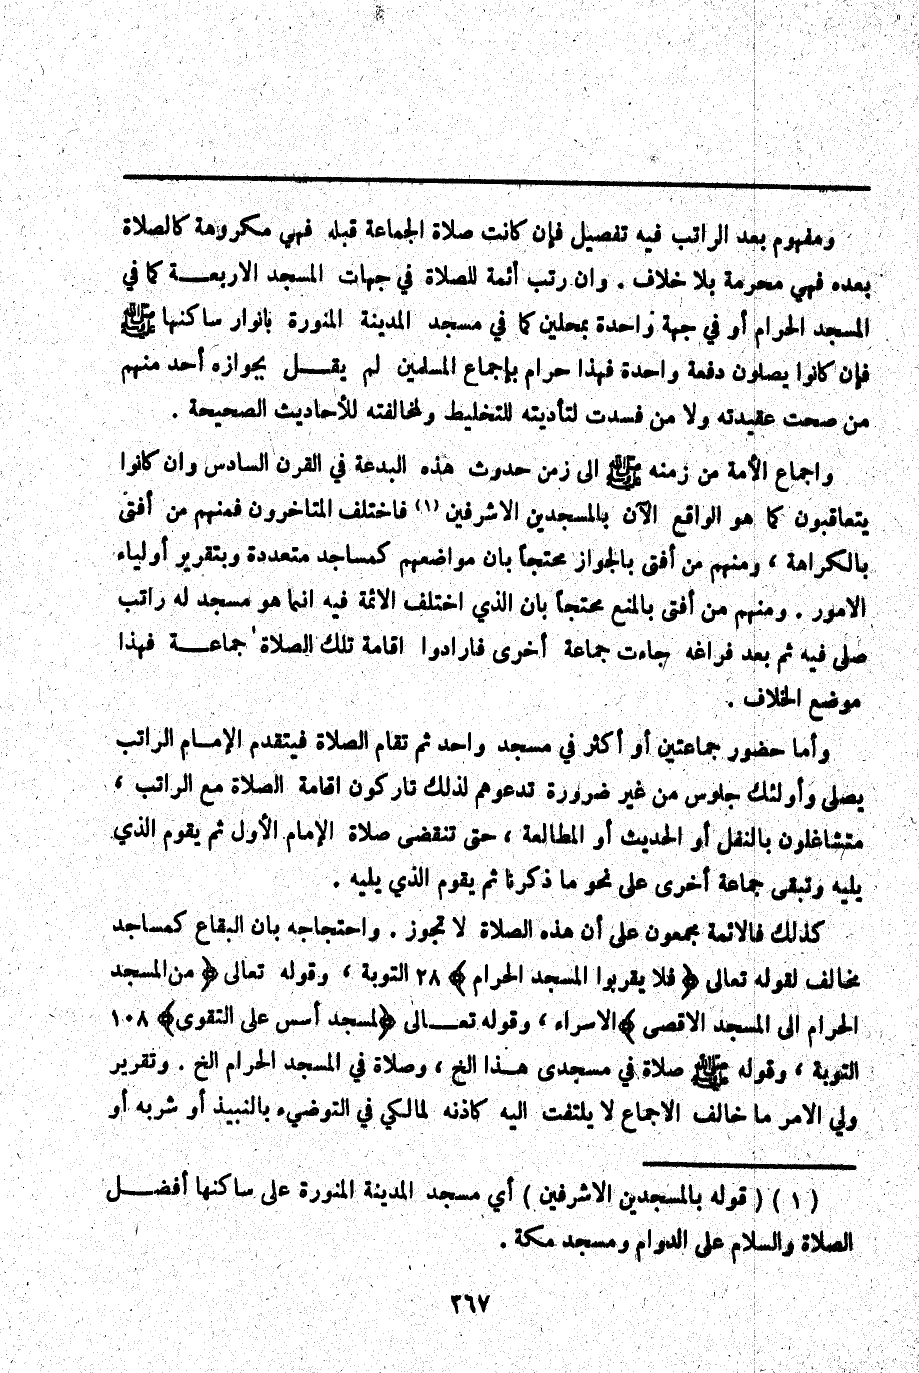 ومفهوم بعد الراتب فيه تفصيل فإن كانت صلاة الجماعة قبله فهي مكروهة كالصلاة
بعده فهي محرمة بلا خلاف . وان رتب أئمة للصلاة في جهات المسجد الاربعة كما في
المسجد الحرام أو في جهة واحدة بمحلين كما في مسجد المدينة المنورة بانوار ساكنها ﷺ
فإن كانوا يصلون دفعة واحدة فهذا حرام بإجماع المسلمين لم يقل بجوازه أحد منهم
من صحت عقيدته ولا من فسدت لتأديته للتخليط ولمخالفته للأحاديث الصحيحة .
واجماع الأمة من زمنه ﷺ الى زمن حدوث هذه البدعة في القرن السادس وان كانوا
يتعاقبون كما هو الواقع الآن بالمسجدين الاشرفين (١) فاختلف المتاخرون فمنهم من أفتى
بالكراهة ، ومنهم من أفتى بالجواز محتجاً بان مواضعهم كمساجد متعددة وبتقرير أولياء
الامور . ومنهم من أفتى بالمنع محتجاً بان الذي اختلف الائمة فيه انما هو مسجد له راتب
صلى فيه ثم بعد فراغه جاءت جماعة أخرى فارادوا اقامة تلك الصلاة جماعة فهذا
موضع الخلاف .
وأما حضور جماعتين أو أكثر في مسجد واحد ثم تقام الصلاة فيتقدم الإمام الراتب
يصلى وأولئك جلوس من غير ضرورة تدعوهم لذلك تاركون اقامة الصلاة مع الراتب ،
متشاغلون بالنفل أو الحديث أو المطالعة ، حتى تنقضى صلاة الإمام الأول ثم يقوم الذي
يليه وتبقى جماعة أخرى على نحو ما ذكرنا ثم يقوم الذي يليه .
كذلك فالائمة مجمعون على أن هذه الصلاة لا تجوز . واحتجاجه بان البقاع كمساجد
مخالف لقوله تعالى ﴿ فلا يقربوا المسجد الحرام ﴾ ٢٨ التوبة ، وقوله تعالى ﴿ من المسجد
الحرام الى المسجد الاقصى ﴾ الاسراء ، وقوله تعالى ﴿لمسجد أسس على التقوى﴾ ١٠٨
التوبة ، وقوله ﷺ صلاة في مسجدى هذا الخ ، وصلاة في المسجد الحرام الخ . وتقرير
ولي الامر ما خالف الاجماع لا يلتفت اليه كاذنه لمالكي في التوضيء بالنبيذ أو شربه أو
( ١ ) ( قوله بالمسجدين الاشرفين ) أي مسجد المدينة المنورة على ساكنها أفضل
الصلاة والسلام على الدوام ومسجد مكة .
٢٦٧